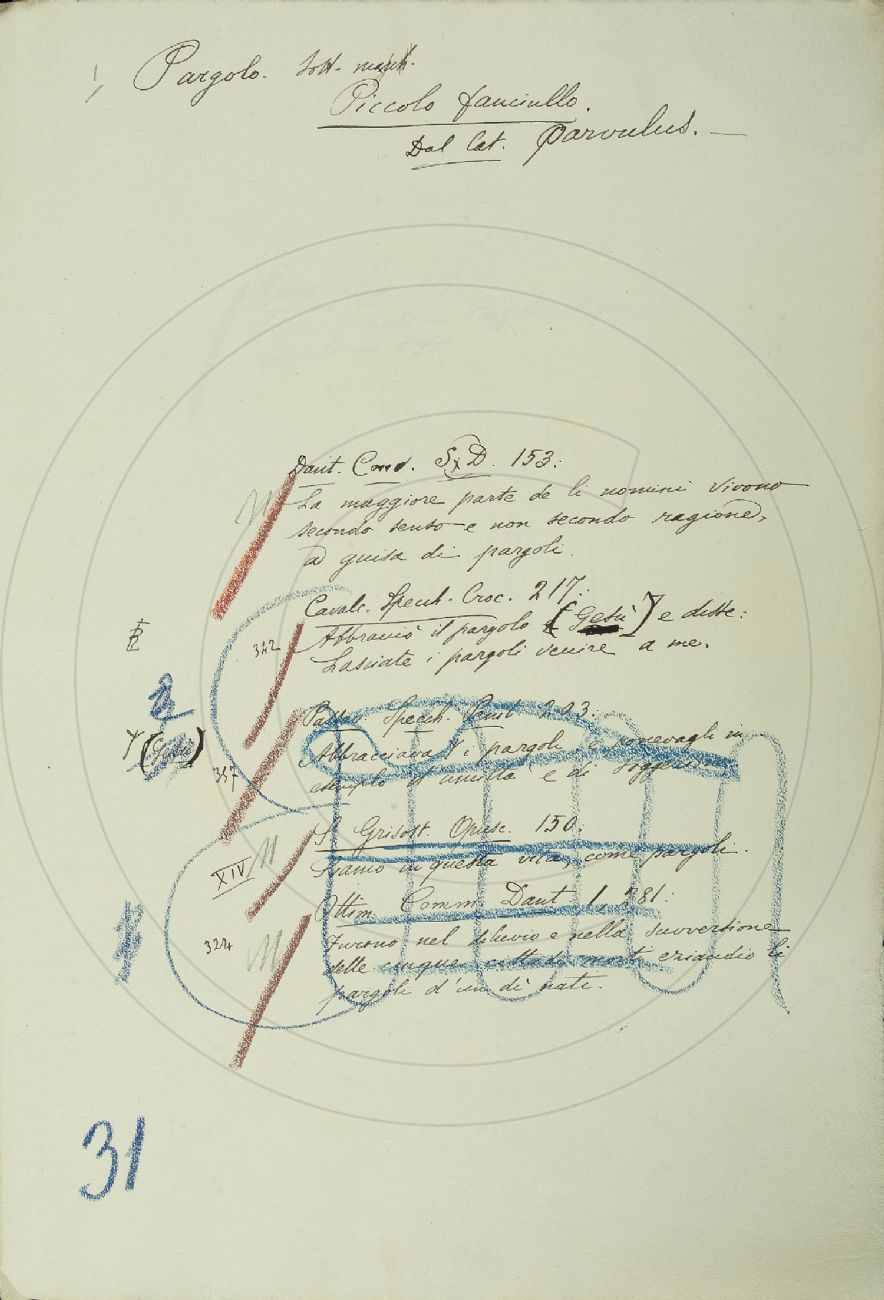 Pargolo. Sost. masch.
Piccolo fanciullo.
Dal lat. Parvulus. —
Dant. Conv. 153:
La maggiore parte de li uomini vivono
secondo senso e non secondo ragione,
a guisa di pargoli.
Cavalc. Specch. Croc. 217:
342 Abbracciò il pargolo [Gesù] e disse:
Lasciate i pargoli venire a me.
Passav. Specch. Penit. 223:
(Gesù) Abbracciava i pargoli, e ponevagli in
337 esemplo d'umiltà e di
S. Grisost. Opusc. 150:
XIV Siamo in questa vita, come pargoli.
Ottim. Comm. Dant. 1, 281:
324 Furono nel diluvio e nella suvversione
delle cinque cittadi morti eziandio li
pargoli d'un dì nati.
31